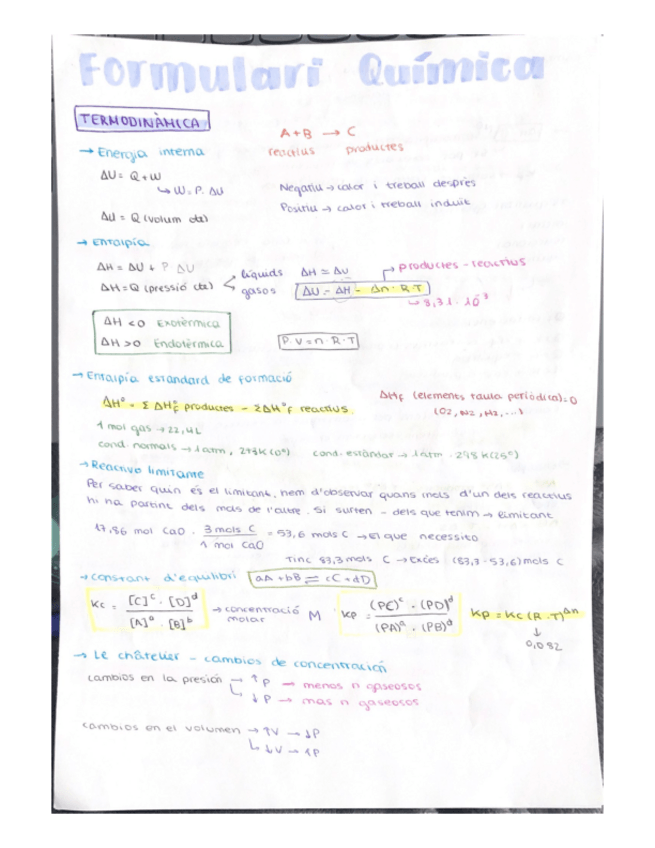 Formulari Química
TERMODINÀMICA
A+B → C
reactius productes
→ Energia interna
ΔU = Q + W
↳ W = P. ΔU
ΔU = Q (volum cte)
Negatiu → calor i treball després
Positiu → calor i treball induit
→ Entalpía
ΔH = ΔU + P ΔU
ΔH = Q (pressió cte)
líquids ΔH ≃ ΔU
gasos ΔU = ΔH - Δn · R·T
→ productes - reactius
↳ 8,31 · 10⁻³
ΔH < 0 Exotèrmica
ΔH > 0 Endotèrmica
P · V = n · R · T
→ Entalpía estandard de formació
ΔH° = Σ ΔH°f productes - ΣΔH°f reactius
ΔHf (elements taula periódica)=0
(O2, N2, H2, ...)
1 mol gas → 22,4L
cond. normals → 1 atm, 273K (0°) cond. estàndar → 1 atm · 298K (25°)
→ Reactivo limitante
Per saber quin és el limitant, hem d'observar quans mols d'un dels reactius
hi ha partint dels mols de l'altre. Si surten - dels que tenim → limitant
17,86 mol CaO · 3 mols C / 1 mol CaO = 53,6 mols C → El que necessito
Tinc 83,3 mols C → Excés (83,3 - 53,6) mols C
→ Constant d'equilibri aA + bB ⇌ cC + dD
Kc = [C]ᶜ · [D]ᵈ / [A]ᵃ · [B]ᵇ → concentració molar M Kp = (PC)ᶜ · (PD)ᵈ / (PA)ᵃ · (PB)ᵇ Kp = Kc (R · T)^Δn
↓
0,082
→ Le châtelier - cambios de concentración
cambios en la presión → ↑P → menos n gaseosos
↳ ↓P → mas n gaseosos
cambios en el volumen → ↑V → ↓P
↳ ↓V → ↑P